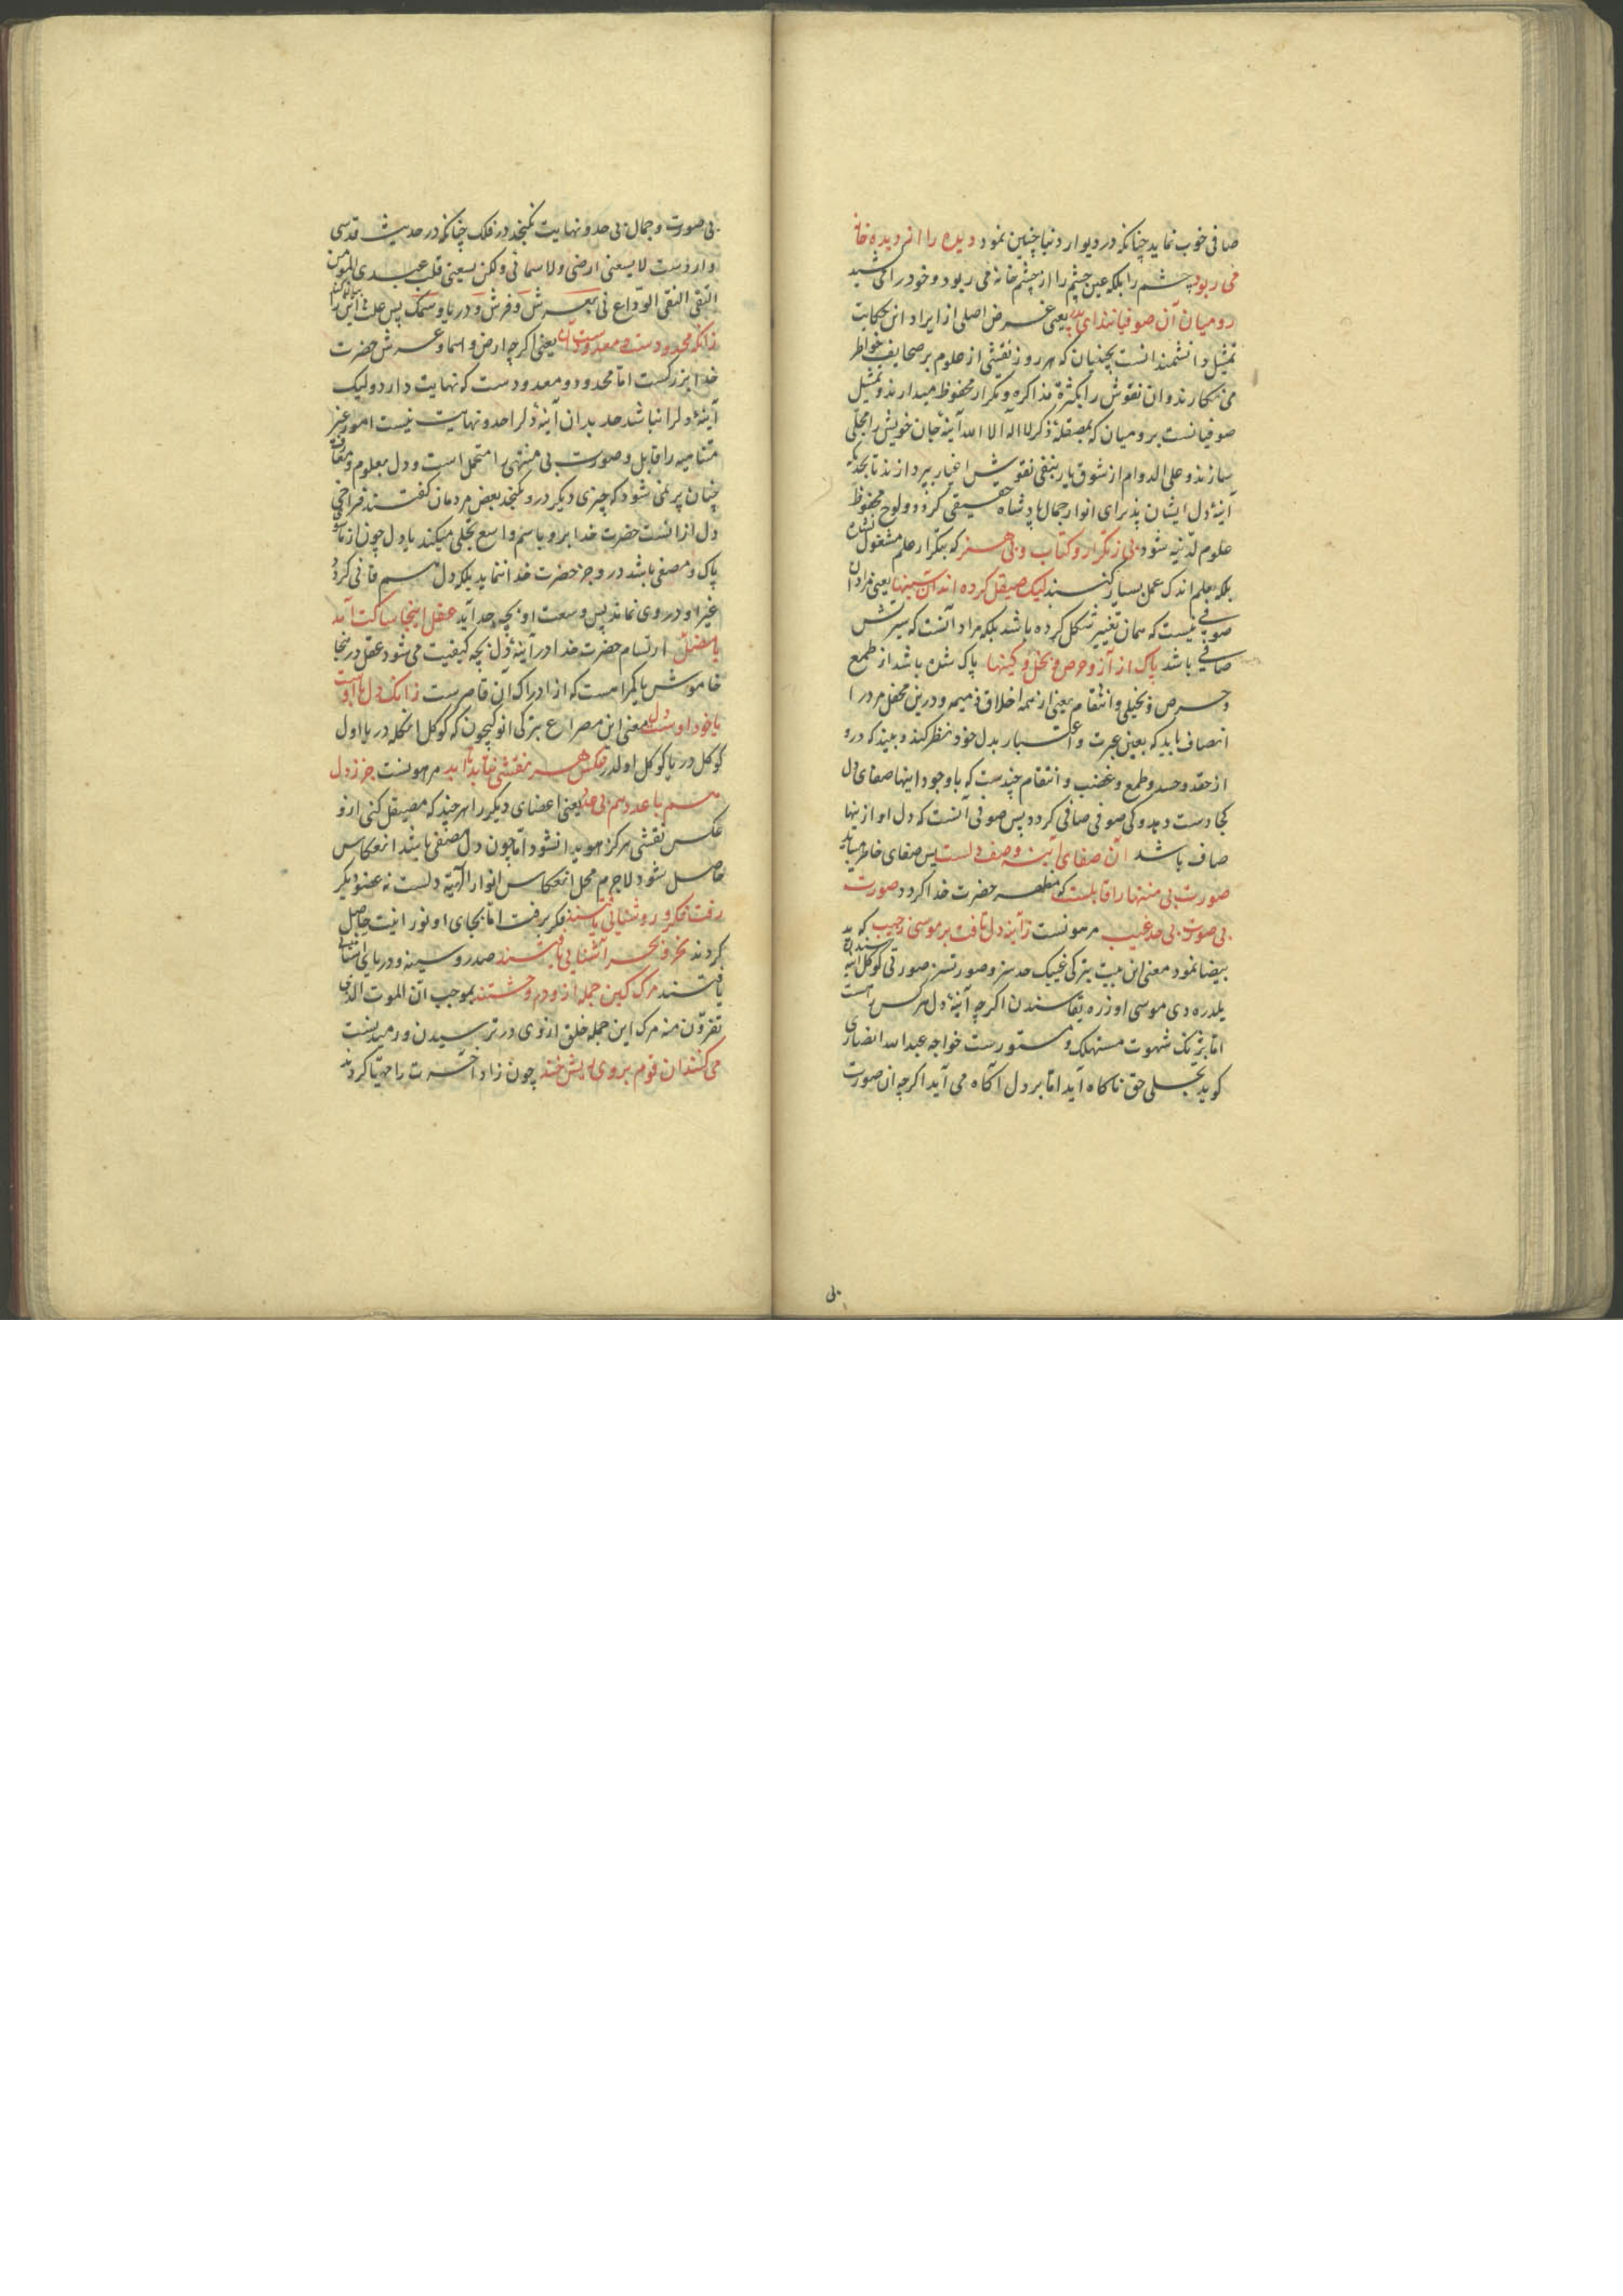 صافی خوب نماید چنانکه در دیوار دنیا چنین نمود دیده را از دیده خانه
می ربود چشم را بلکه عین چشم را از چشم خانه می ربود و خود را می کشید
رومیان آن صوفیانند ای پدر یعنی غرض اصلی از ایراد این حکایت
تمثیل دانشمندانست بچینیان که هر روز نقشی از علوم بر صحایف خواطر
می نگارند و ان نقوش را بکثرة مذاکره و تکرار محفوظ میدارند و تمثیل
صوفیانست برومیان که بمصقلهٔ ذکر لا اله الا الله آینهٔ جان خویش را مجلّی
سازند و علی الدوام از شوق یار بنفی نقوش اغیار بپردازند تا بحدّی که
آینهٔ دل ایشان پذیرای انوار جمال پادشاه حقیقی کردد و لوح محفوظ
علوم لدنّیه شود بی ز تکرار و کتاب و بی هنر که بتکرار علم مشغول نشوند
بلکه بعلم اندک عمل بسیار کنند لیک صیقل کرده اند ان سینها یعنی مراد از
صوفی نیست که همان تغییر شکل کرده باشد بلکه مراد آنست که سرّش
صافی باشد پاک از آز و حرص و بخل و کینها پاک شده باشد از طمع
و حرص و بخیلی و انتقام یعنی از همه اخلاق ذمیمه و درین محفل مرد را
انصاف باید که بعین عبرت و اعتبار بدل خود نظر کند و ببیند که درو
از حقد و حسد و طمع و غضب و انتقام چندست که باوجود اینها صفای دل
کجا دست دهد و کی صوفی صافی کردد پس صوفی آنست که دل او ازینها
صاف باشد آن صفای آینه وصف دلست پس صفای خاطر میباید
صورت بی منتها را قابلست که مظهر حضرت خدا کردد صورت
بی صورت بی حد غیب مرهونست ز آینه دل تافت بر موسی ز جیب که ید
بیضا نمود معنی این بیت بترکی غیبک حدسز و صورتسز صورتی کوکل آینه سنده
یلدره دی موسی اوزره یقاسندن اکرچه آینهٔ دل هر کس راست
اما بژنک شهوت مستهلک و مستورست خواجه عبد الله انصاری
کوید تجلی حق ناکاه آید اما بر دل آکاه می آید اکرچه ان صورت
بی
بی صورت و جمال بی حد و نهایت نکنجد در فلک چنانکه در حدیث قدسی
واردست لا یسعنی ارضی و لا سمائی و لکن یسعنی قلب عبدی المؤمن
التقی النقی الورّاع نی بعرش و فرش و دریا و سمک پس علت این را بیان کند
زانکه محدودست و معدودست آن یعنی اکرچه ارض و سما و عرش حضرت
خدا بزرکست اما محدود و معدودست که نهایت دارد ولیک
آینهٔ دل را نباشد حد بدان آینهٔ دل را حد و نهایت نیست امور غیر
متناهیه را قابل و صورت بی منتهی را متحمل است و دل بمعلوم و معانی
چنان پر نمی شود که چیزی دیکر درو نکنجد بعض مردمان کفتند فراخی
دل از انست حضرت خدا برو باسم واسع تجلی میکند یا دل چون از ماسوی
پاک و مصفی باشد درو جز حضرت خدا ننماید بلکه دل هم فانی کردد
غیر او در وی نماند پس وسعت او بچه حد آید عقل اینجا ساکت آمد
یا مضل ارتسام حضرت خدا در آینهٔ دل بچه کیفیت می شود عقل درینجا
خاموش یا کمراهست که از ادراک ان قاصرست زانکه دل با اوست
یا خود اوست دل معنی این مصراع بترکی انوکیچون که کوکل انکله در یا اول
کوکل در یا کوکل اولدر عکس هر نقشی نتابد تا ابد مرهونست جز ز دل
هم با عدد هم بی عدد یعنی اعضای دیکر را هر چند که مصیقل کنی ازو
عکس نقشی هرکز هویدا نشود اما چون دل مصفی باشد انعکاس
حاصل شود لاجرم محل انعکاس انوار الهیّه دلست نه عضو دیکر
رفت فکر و روشنایی یافتند فکر برفت اما بجای او نورانیت حاصل
کردند نحر و بحر آشنایی یافتند صدر و سینه و دریای آشنایی
یافتند مرک کین جمله ازو در وحشتند بموجب انّ الموت الذی
تفرّون منه مرک این جمله خلق از وی در ترسیدن و رمیدنست
می کنند ان قوم بر وی ریش خند چون زاد آخرت را مهیّا کردند